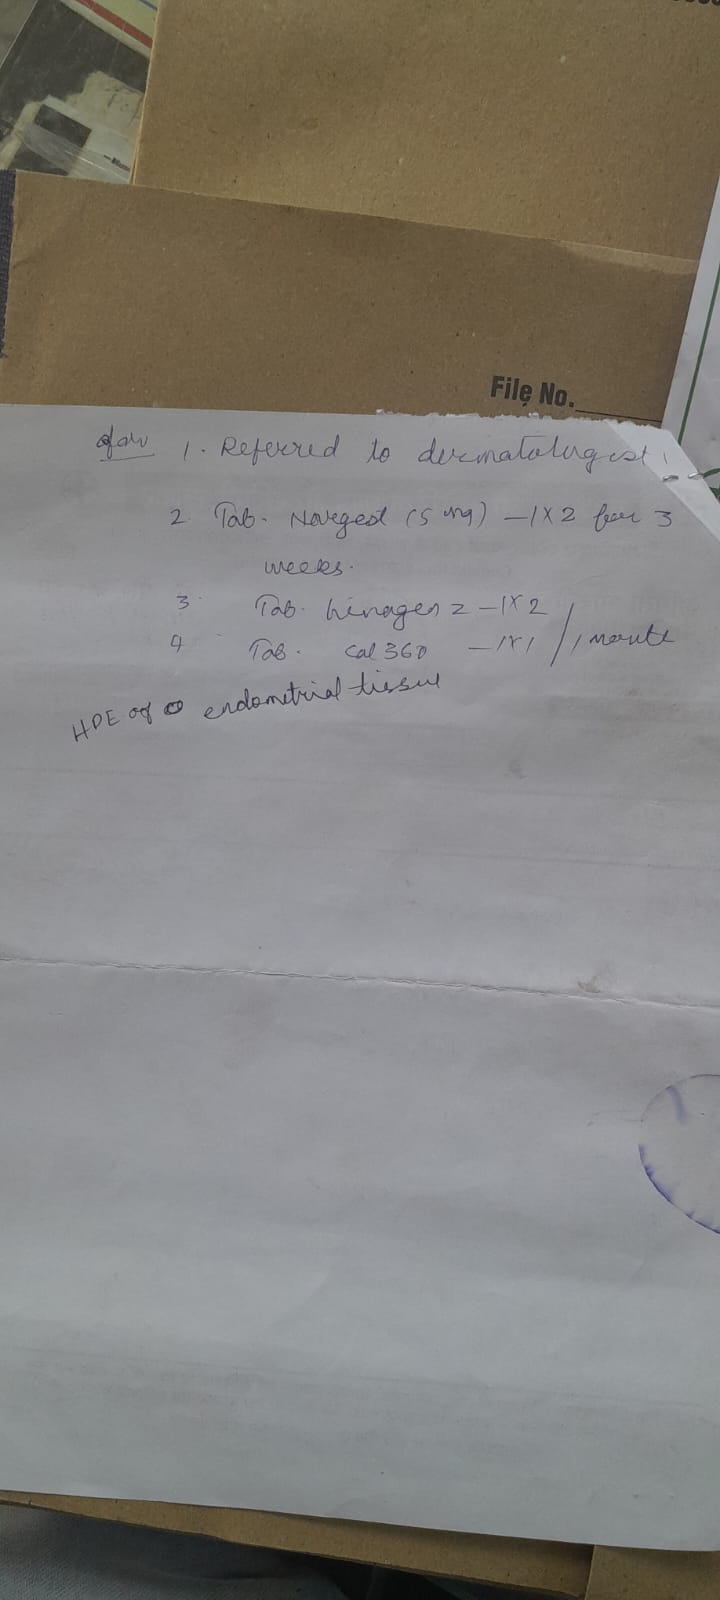 File No.
1. Referred to dermatologist
2 Tab. Norgest (5 mg) - 1X2 for 3
weeks.
3. Tab. z - 1X2
4 Tab. Cal 360 - 1X1 / 1 month
HPE of endometrial tissue